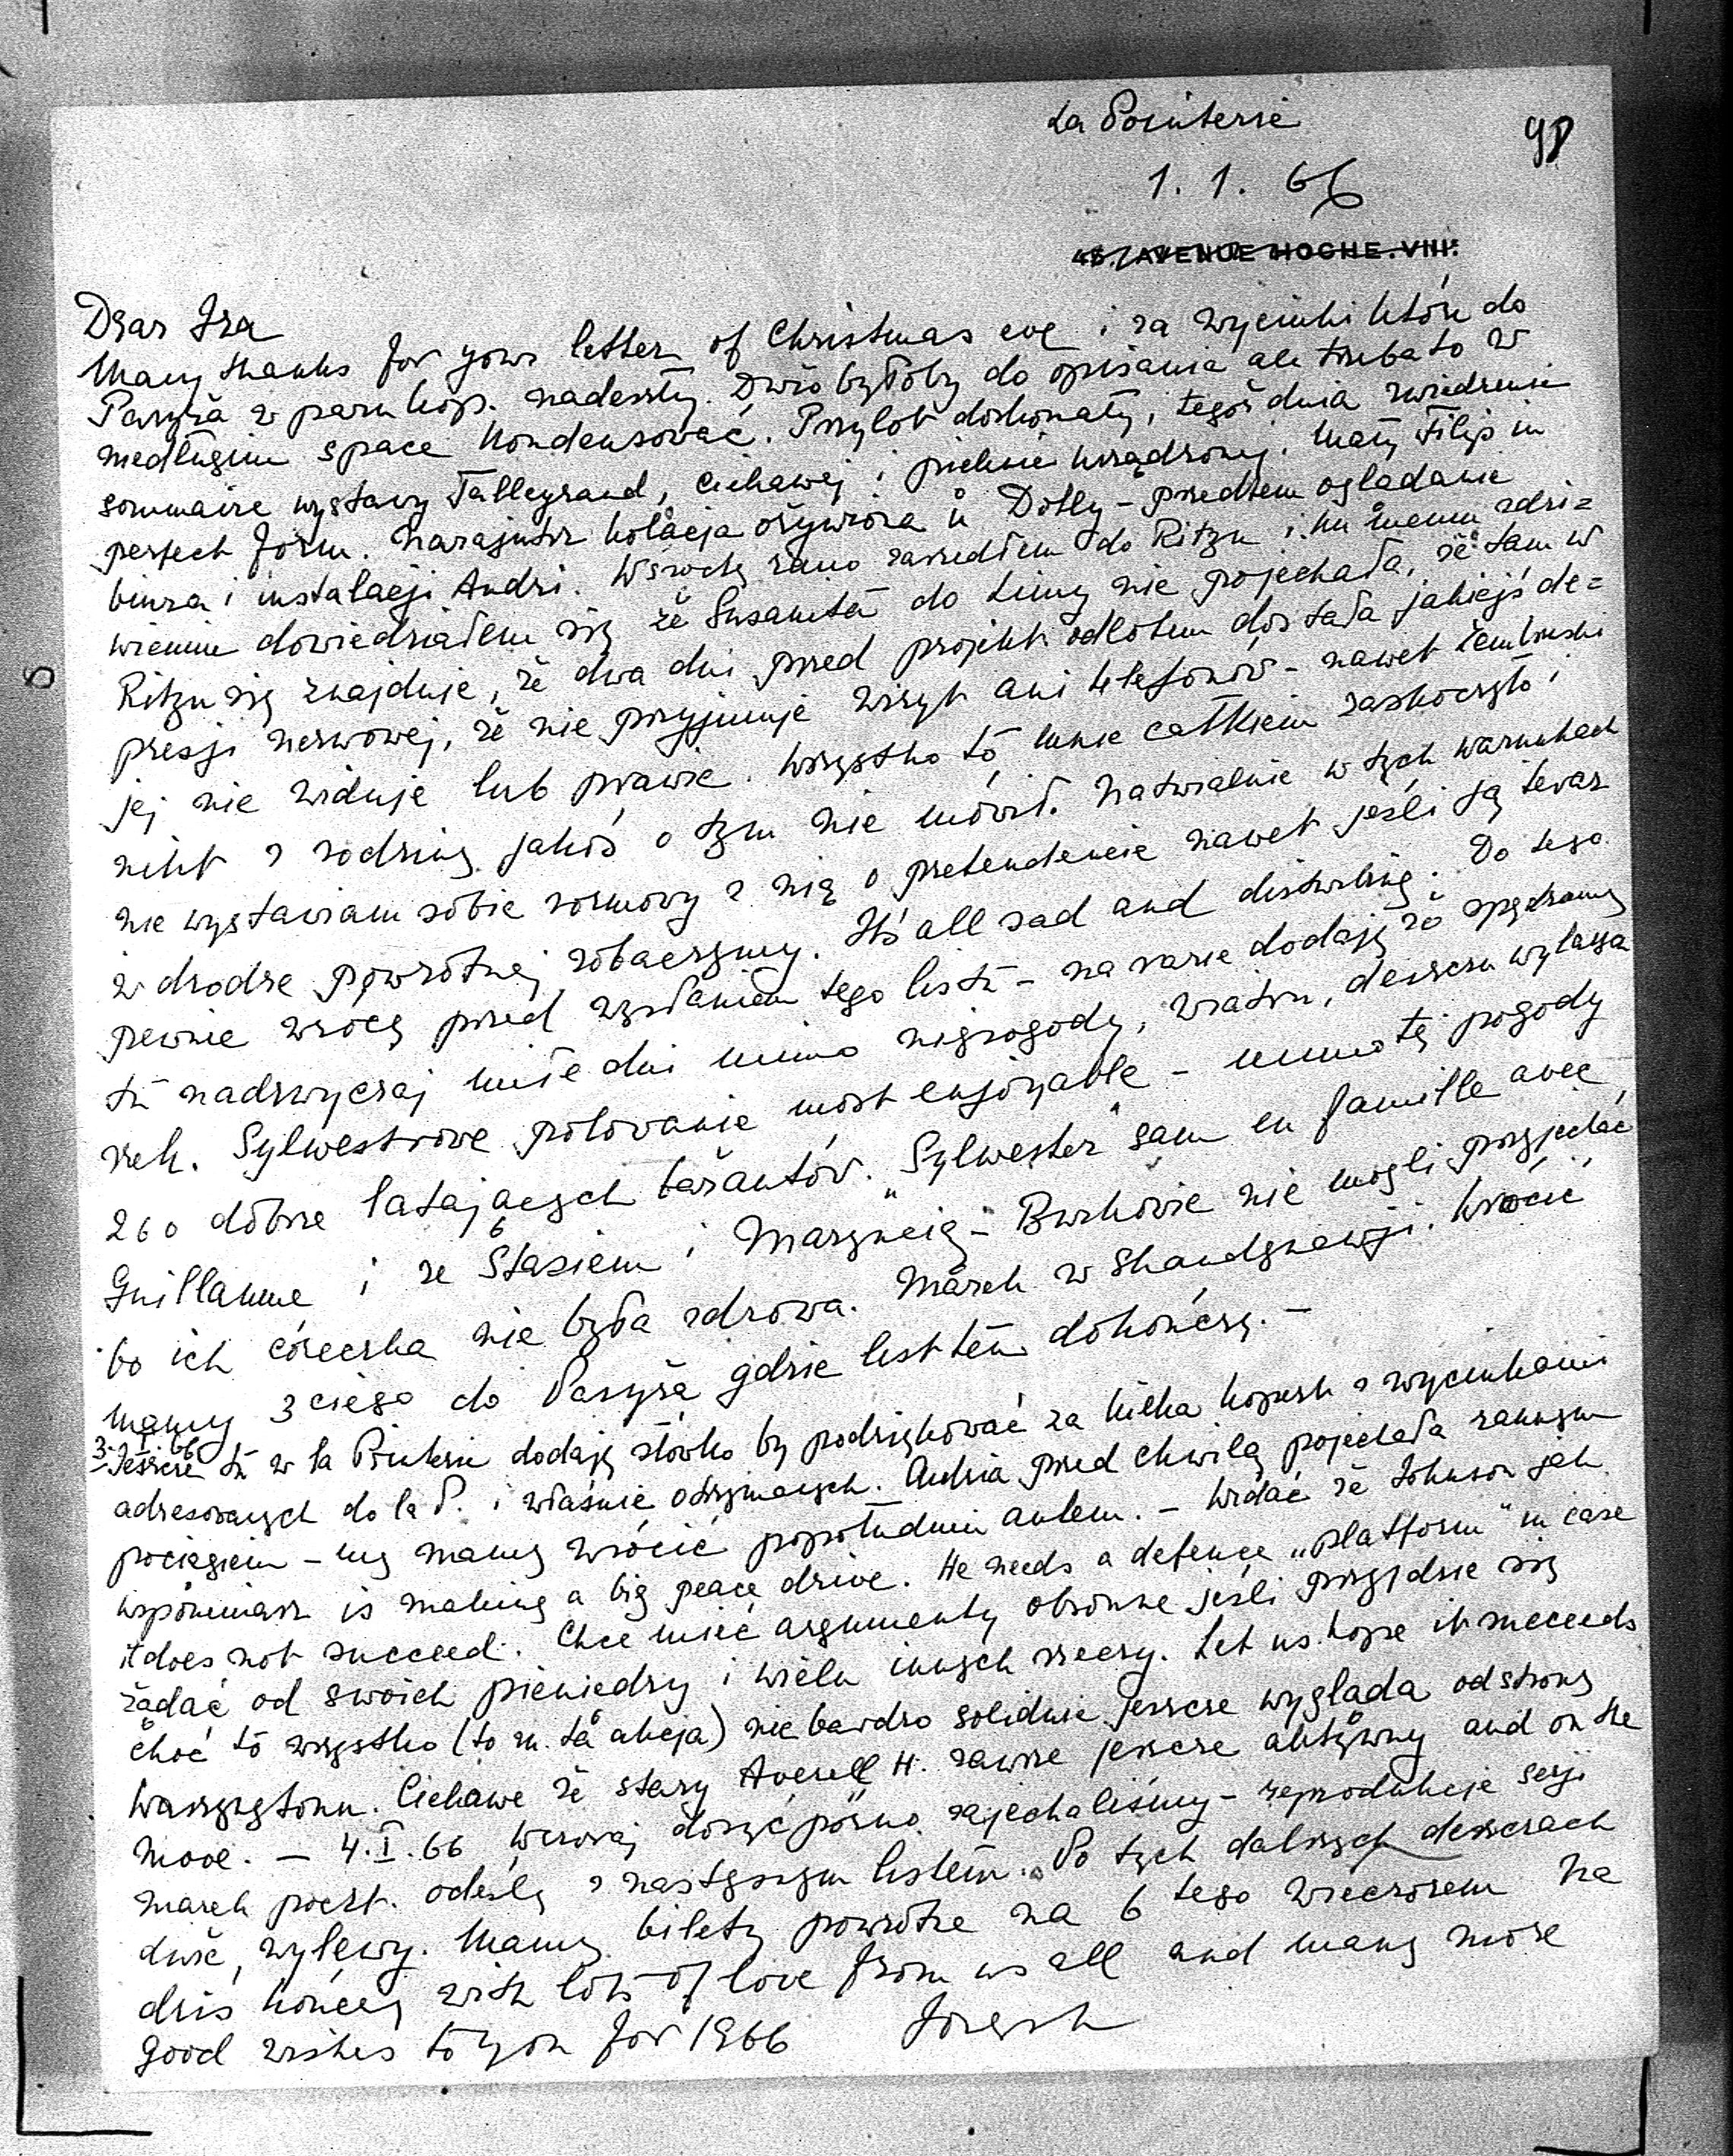 La Pointerie
98
1. 1. 66
45, AVENUE HOCHE. VIII:
Dear Iza
Many thanks for your letter of Christmas eve i za wycinki które do
Paryża w paru kop. nadeszły. Dużo byłoby do opisania ale trzeba to w
niedługim space kondensować. Przylot doskonały, tegoż dnia zwiedzenie
sommaire wystawy Talleyrand, ciekawej i pięknie urządzonej. Mały Filip in
perfect form. Nazajutrz kolacja ożywiona u Dolly – przedtem oglądanie
biura i instalacji Andzi. W środę rano zaszedłem do Ritzu i ku memu zdzi=
wieniu dowiedziałem się że Susanita do Limy nie pojechała, że tam w
Ritzu się znajduje, że dwa dni przed projekt. odlotem dostała jakiejś de=
presji nerwowej, że nie przyjmuje wizyt ani telefonów – nawet
jej nie widuje lub prawie. Wszystko to mnie całkiem zaskoczyło i
nikt z rodziny jakoś o tym nie mówił. Naturalnie w tych warunkach
nie wystawiam sobie rozmowy z nią o pretendencie nawet jeśli ją teraz
w drodze powrotnej zobaczymy. It's all sad and disturbing. Do tego
pewnie wrócę przed wysłaniem tego listu – na razie dodaję że spędzamy
tu nadzwyczaj miłe dni mimo niepogody, wiatru, deszczu wylania
rzek. Sylwestrowe polowanie most enjoyable – mimo tej pogody
260 dobrze latających bażantów. "Sylwester" sam en famille avec
Guillaume i ze Stasiem i Maryncią – Burkowie nie mogli przyjechać
bo ich córeczka nie była zdrowa. Marek w Skandynawji. Wrócić
mamy 3ciego do Paryża gdzie list ten dokończę. –
3. I. 66 Jeszcze tu w la Pointerie dodaję słówko by podziękować za kilka kopert z wycinkami
adresowanych do la P. i właśnie otrzymanych. Andzia przed chwilą pojechała rannym
pociągiem – my mamy wrócić popołudniu autem. – Widać że Johnson jak
wspominasz is making a big peace drive. He needs a defence „platform" in case
it does not succeed. Chce mieć argumenty obronne jeśli przyjdzie się
żądać od swoich pieniędzy i wielu innych rzeczy. Let us hope it succeeds
choć to wszystko (to zn. ta akcja) nie bardzo solidnie jeszcze wygląda od strony
Waszyngtonu. Ciekawe że stary Averell H. zawsze jeszcze aktywny and on the
move. – 4. I. 66 Wczoraj dosyć późno zajechaliśmy – reprodukcje serji
marek poczt. odeślę z następnym listem. Po tych dalszych deszczach
duże wylewy. Mamy bilety powrotne na 6 tego wieczorem na
dziś kończę with lots of love from us all and many more
good wishes to you for 1966 Joseph